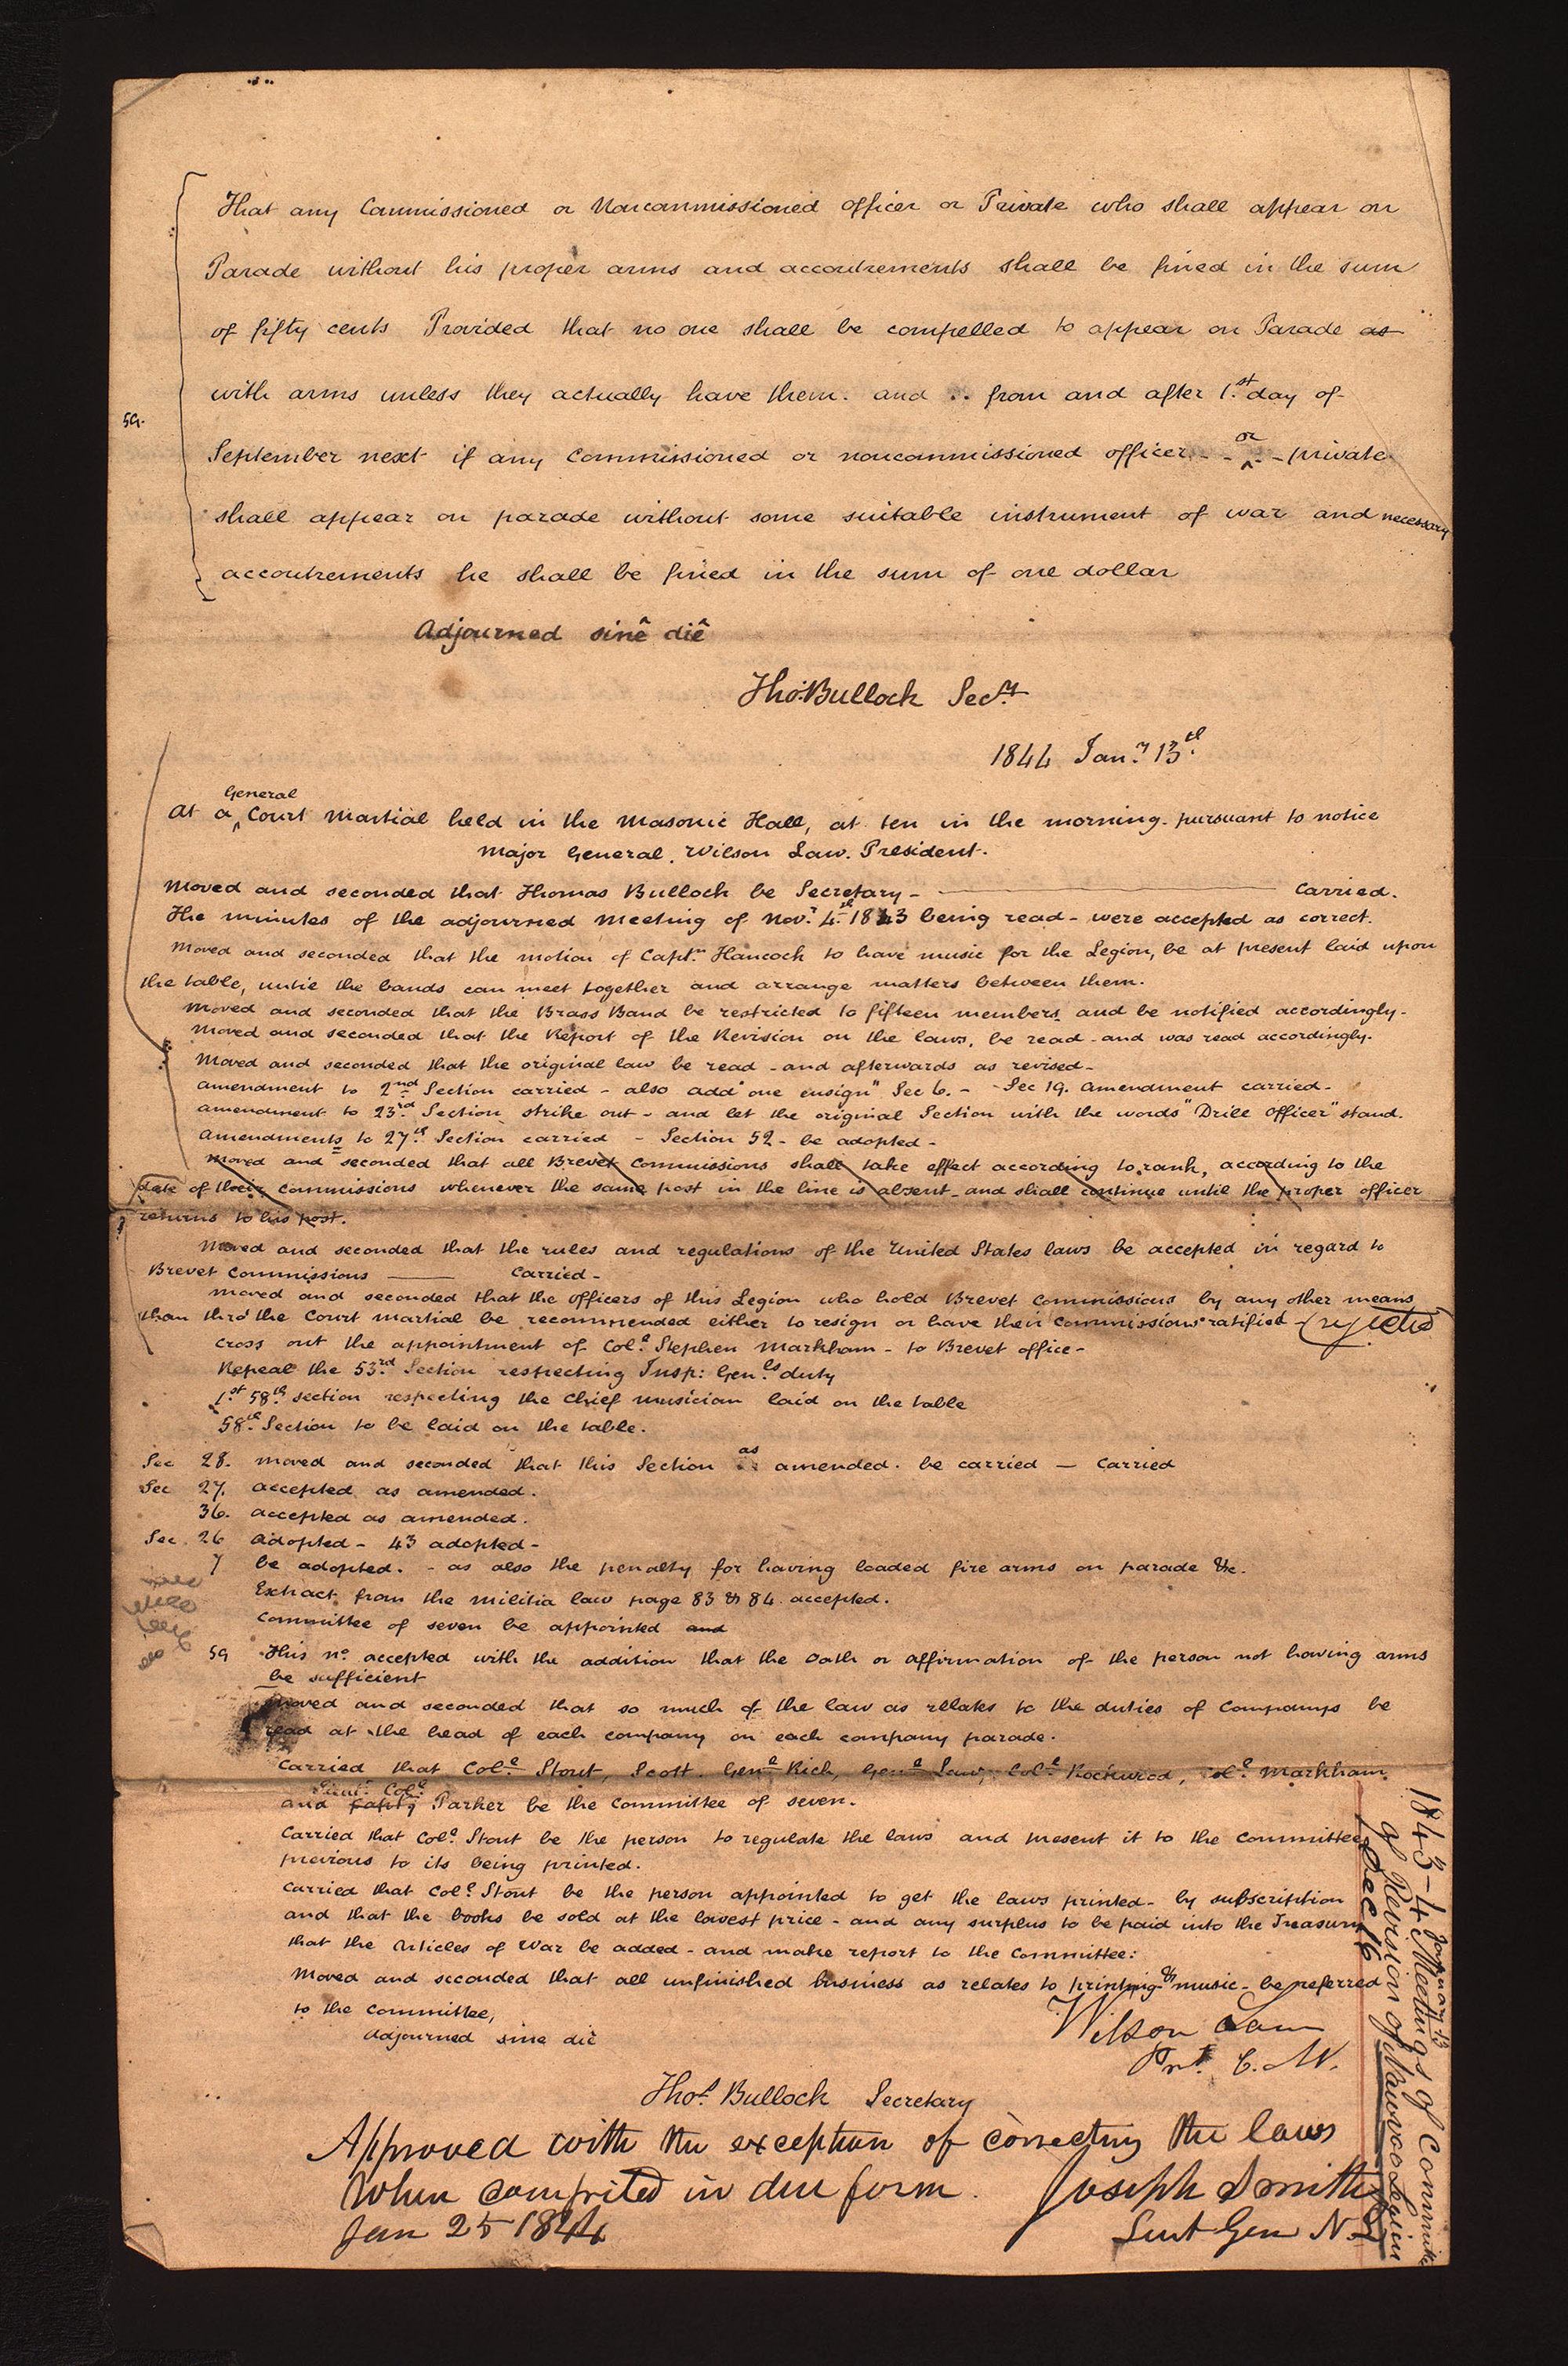 That any Commissioned or Noncommissioned officer or Private who shall appear on
Parade without his proper arms and accoutrements shall be fined in the sum
of fifty cents Provided that no one shall be compelled to appear on Parade as
with arms unless they actually have them. and from and after 1.st day of
59.
September next if any Commissioned or noncommissioned officer - - or - private
shall appear on parade without some suitable instrument of war and necessary
accoutrements he shall be fined in the sum of one dollar
Adjourned sinê diê
Tho.s Bullock Sec.y
1844 Jan.y 13.th
At a General Court Martial held in the Masonic Hall, at ten in the morning. pursuant to notice
Major General. Wilson Law. President.
Moved and seconded that Thomas Bullock be Secretary - Carried.
The minutes of the adjourned meeting of Nov.r 4.th 1843 being read - were accepted as correct.
Moved and seconded that the motion of Capt.n Hancock to have music for the Legion, be at present laid upon
the table, until the bands can meet together and arrange matters between them.
Moved and seconded that the Brass Band be restricted to fifteen members and be notified accordingly -
Moved and seconded that the Report of the Revision on the laws, be read - and was read accordingly.
Moved and seconded that the original law be read - and afterwards as revised -
Amendment to 2nd Section carried - also add "one ensign" Sec 6. - Sec 19. amendment carried -
Amendment to 23.rd Section strike out - and let the original Section with the words "Drill officer" stand.
Amendments to 27.th Section carried - Section 52 - be adopted -
Moved and seconded that all Brevet Commissions shall take effect according to rank, according to the
date of their commissions whenever the same post in the line is absent - and shall continue until the proper officer
returns to his post.
Moved and seconded that the rules and regulations of the United States laws be accepted in regard to
Brevet Commissions —— Carried -
Moved and seconded that the officers of this Legion who hold Brevet Commissions by any other means
than thro' the Court Martial be recommended either to resign or have their Commissions ratified - (rejected)
Cross out the appointment of Col.l Stephen Markham - to Brevet office -
Repeal the 53.rd Section respecting Insp: Gen.ls duty
1.st 58.th section respecting the Chief musician laid on the table
58.th Section to be laid on the table.
Sec 28. Moved and seconded that this Section as amended. be carried — Carried
Sec 27. accepted as amended.
36. accepted as amended.
Sec. 26 Adopted - 43 adopted -
7 be adopted. - as also the penalty for having loaded fire arms on parade &c.
Extract from the Militia law page 83 & 84 accepted.
Committee of seven be appointed and
59 This n.o accepted with the addition that the oath or affirmation of the person not having arms
be sufficient
Moved and seconded that so much of the law as relates to the duties of Companys be
read at the head of each company on each company parade.
Carried that Col.l Stout, Scott, Gen.l Rich, Gen.l Law, Col.l Rockwood, Col.l Markham
Lieut. Col.l
and Parker be the Committee of seven.
Carried that Col.l Stout be the person to regulate the laws and present it to the Committee
previous to its being printed.
Carried that Col.l Stout be the person appointed to get the laws printed - by subscription
and that the books be sold at the lowest price - and any surplus to be paid into the Treasury
that the Articles of War be added - and make report to the Committee:
Moved and seconded that all unfinished business as relates to printing & music - be referred
to the Committee,
Adjourned sine diê
Wilson Law
Pr.t C. M.
Tho.s Bullock Secretary
Approved with the exception of correcting the laws
When compited in due form.
Joseph Smith
Jan 25 1844
Lieut Gen N. L
January 13
1843-4 Meetings of Committe
of Revision of Nauvoo Legion
Dec 16